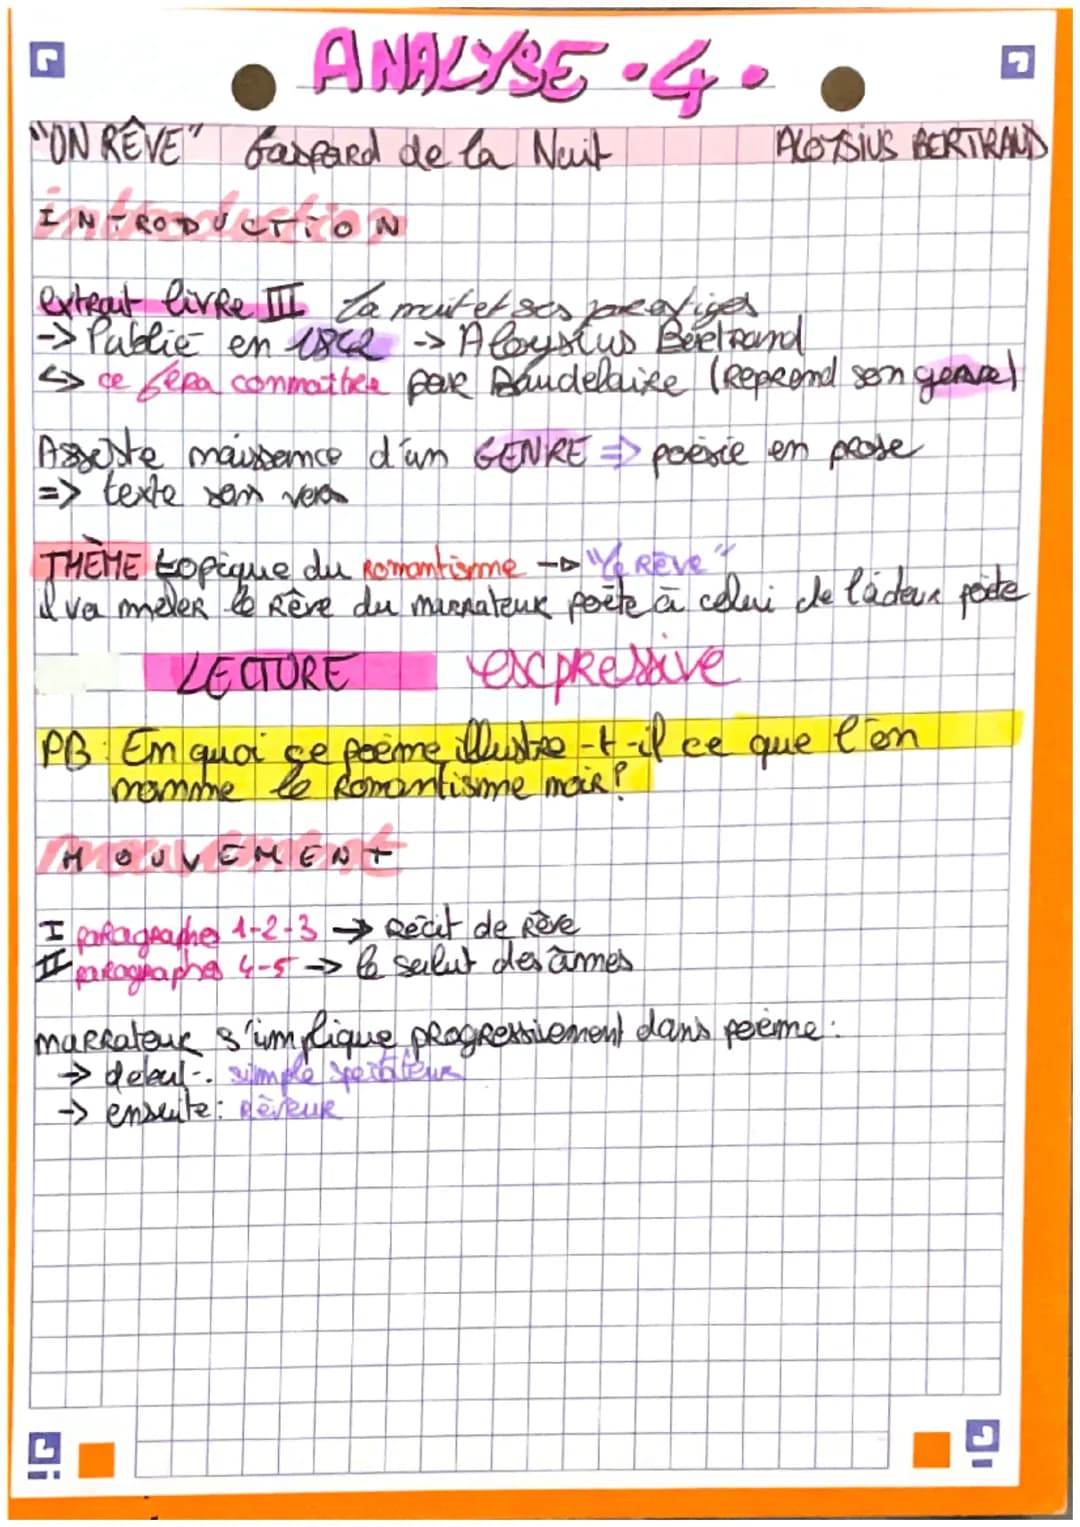 ANALYSE • 4 •
"ON RÊVE" Gaspard de la Nuit ALOYSIUS BERTRAND
INTRODUCTION
extrait livre III La nuit et ses prestiges
-> Publié en 1842 -> Aloysius Bertrand
↳ se fera connaître par Baudelaire (reprend son genre)
Assiste naissance d'un GENRE => poésie en prose
=> texte sans vers
THÈME topique du romantisme -> "le Rêve"
il va mêler le rêve du narrateur poète à celui de l'acteur poète
LECTURE expressive
PB : En quoi ce poème illustre-t-il ce que l'on
nomme le Romantisme noir ?
MOUVEMENT
I paragraphes 1-2-3 -> Récit de Rêve
II paragraphes 4-5 -> le salut des âmes
narrateur s'implique progressivement dans poème :
-> début : simple spectateur
-> ensuite : rêveur